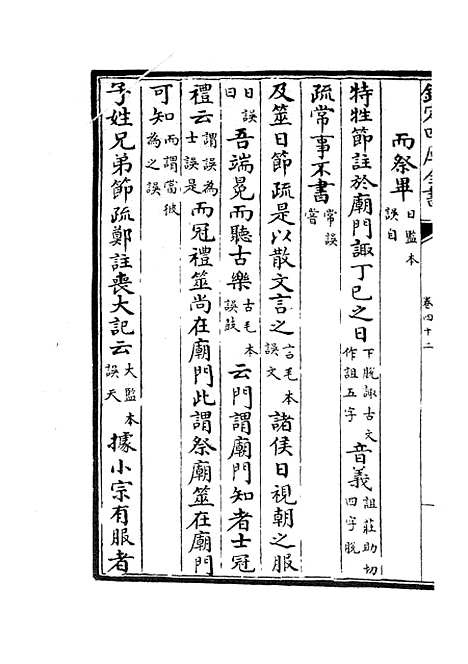 欽定四庫全書 卷四十二
而祭畢日監本誤自
特牲節註於廟門諏丁巳之日下脫諏古文作詛五字音義詛莊助切四字脫
疏常事不書常誤嘗
及筮日節疏是以散文言之言毛本誤文諸侯日視朝之服
日誤曰吾端冕而聽古樂古毛本誤鼓云門謂廟門知者士冠
禮云謂誤為士誤是而冠禮筮尚在廟門此謂祭廟筮在廟門
可知而謂當彼為之誤
子姓兄弟節疏鄭註喪大記云大監本誤天據小宗有服者